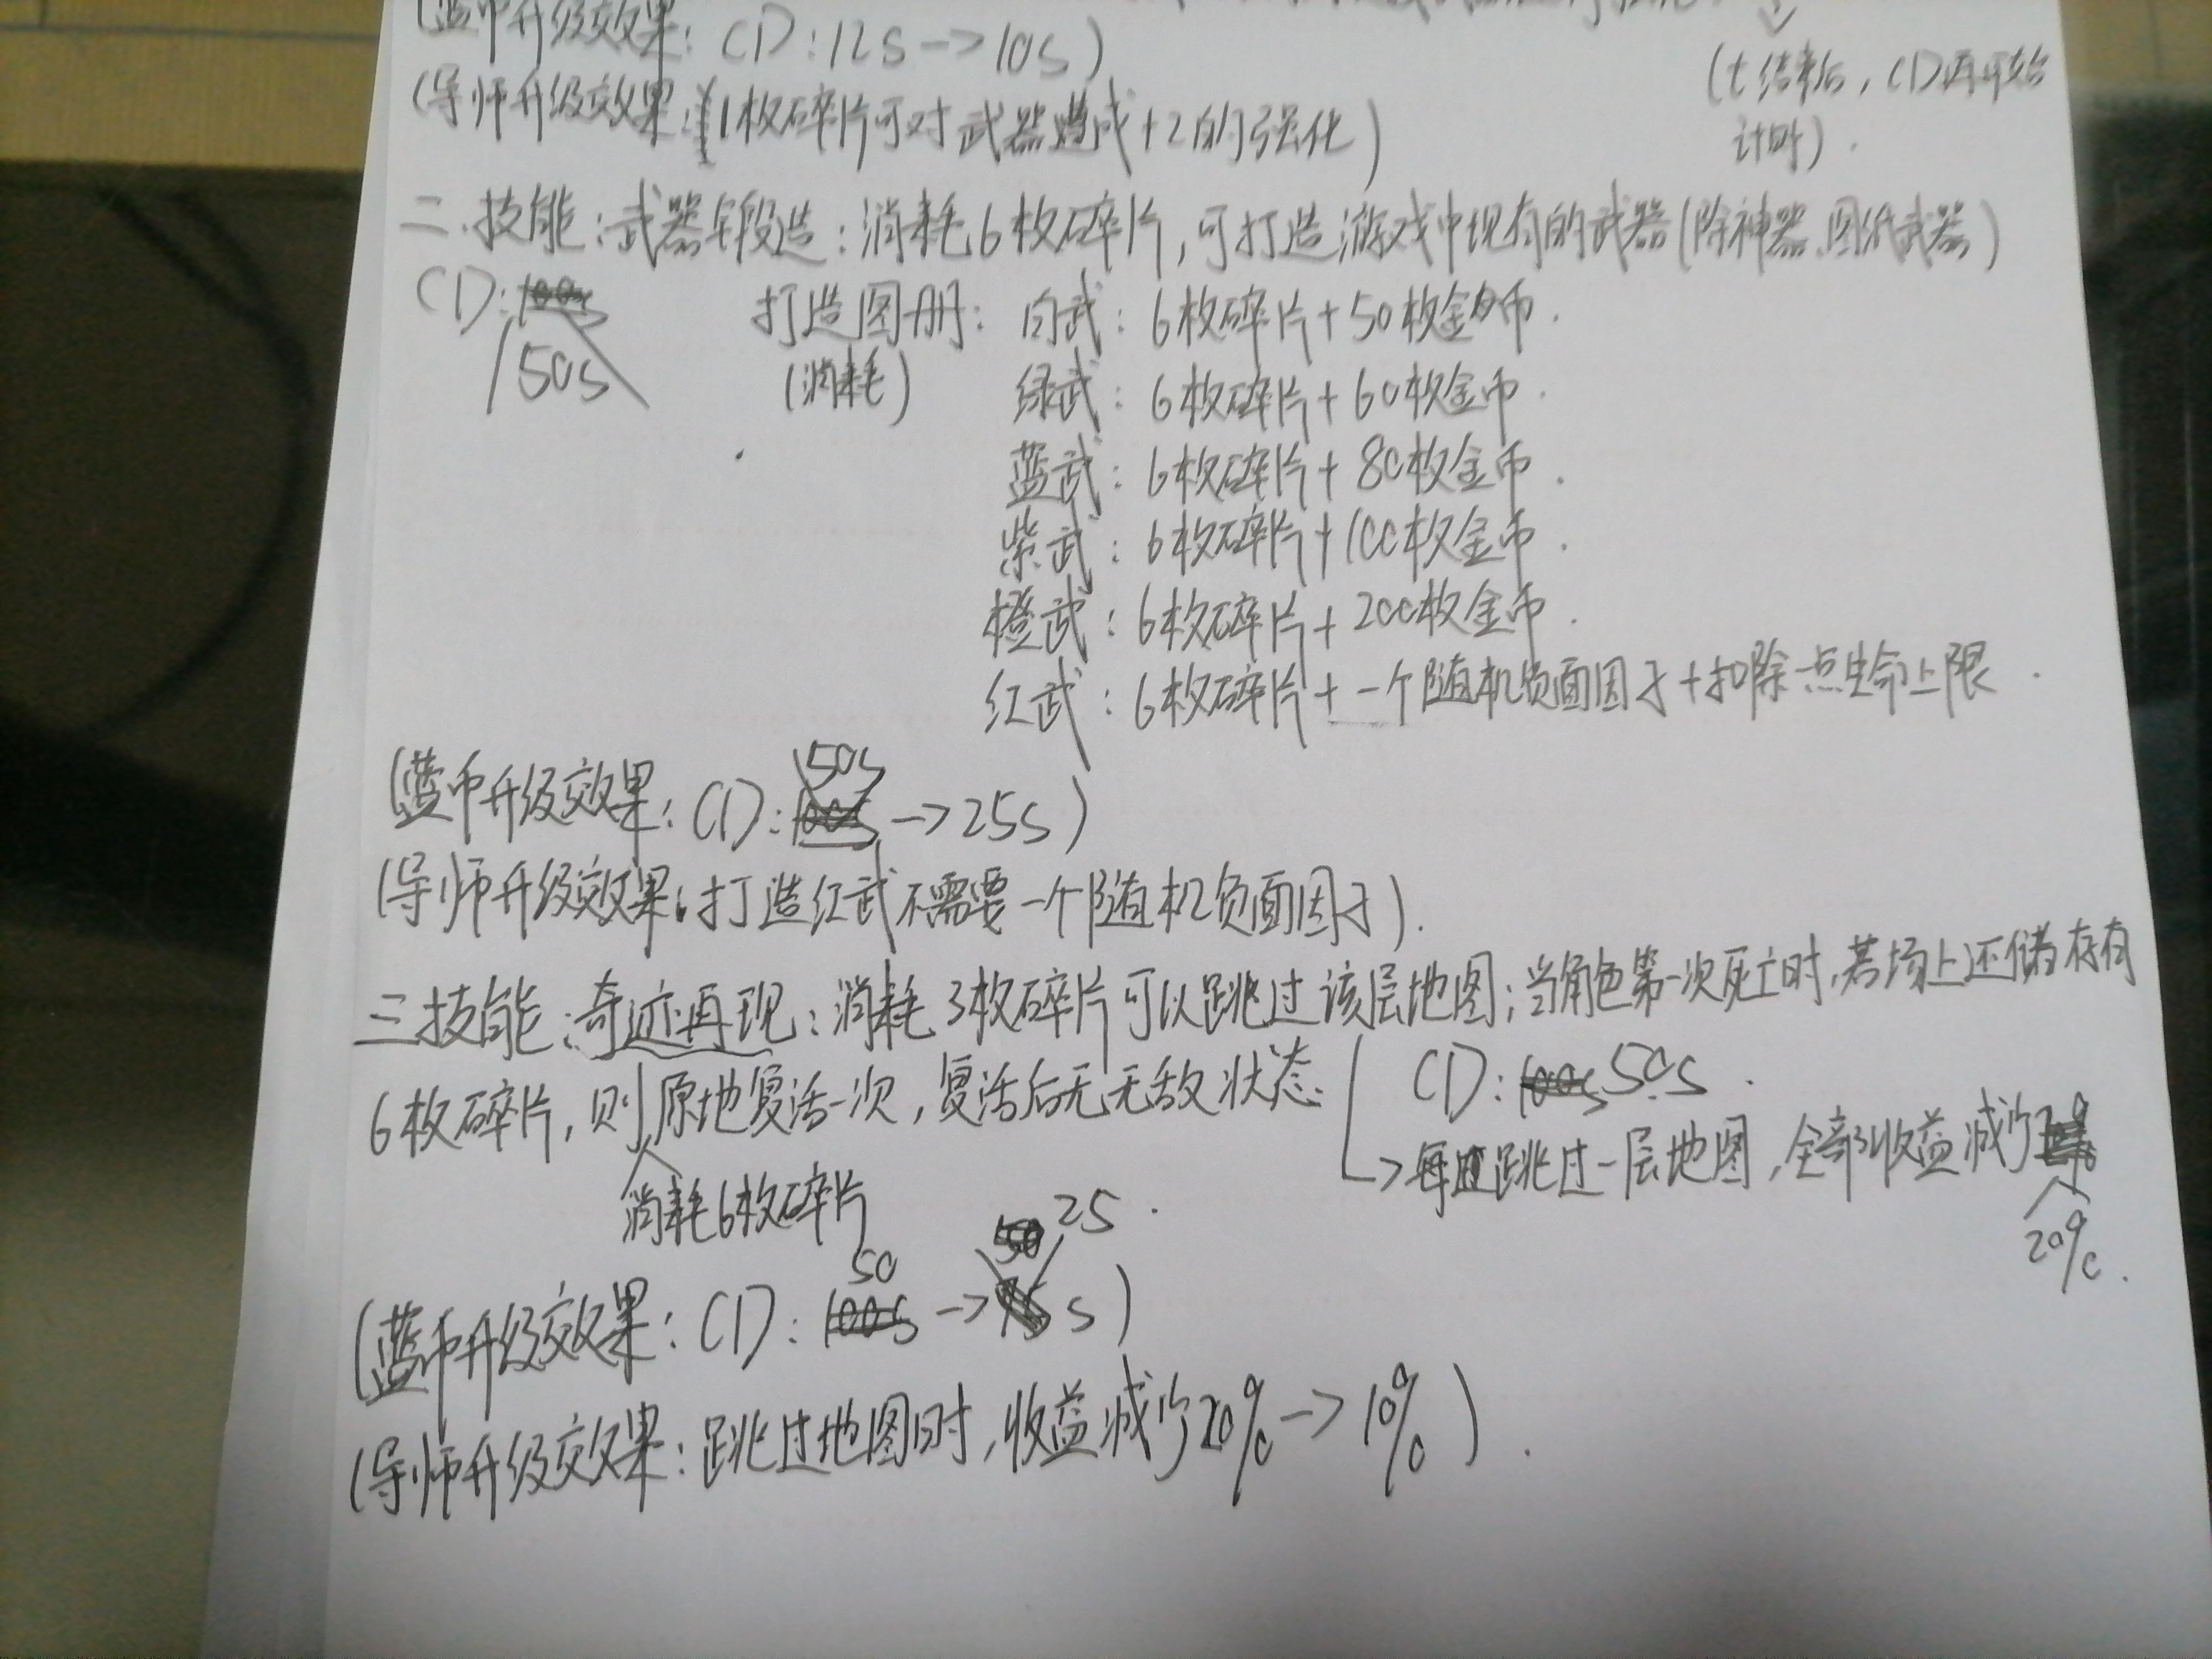 (蓝币升级效果：CD：12s→10s)
(t结束后，CD再开始
计时).
(导师升级效果：1枚碎片可对武器造成+2的强化)
二.技能：武器锻造：消耗6枚碎片，可打造游戏中现有的武器(除神器、图纸武器)
CD：100s
50s
打造图册：白武：6枚碎片+50枚金币.
(消耗)
绿武：6枚碎片+60枚金币.
蓝武：6枚碎片+80枚金币.
紫武：6枚碎片+100枚金币.
橙武：6枚碎片+200枚金币.
红武：6枚碎片+一个随机负面因子+扣除一点生命上限.
50s
(蓝币升级效果：CD：100s→25s)
(导师升级效果：打造红武不需要一个随机负面因子).
三技能：奇迹再现：消耗3枚碎片可以跳过该层地图；当角色第一次死亡时，若场上还储存有
6枚碎片，则原地复活一次，复活后无无敌状态.
消耗6枚碎片
CD：100s 50s.
→每跳过一层地图，全部收益减少
20%.
50 50 25.
(蓝币升级效果：CD：100s→75s)
(导师升级效果：跳过地图时，收益减少20%→10%).